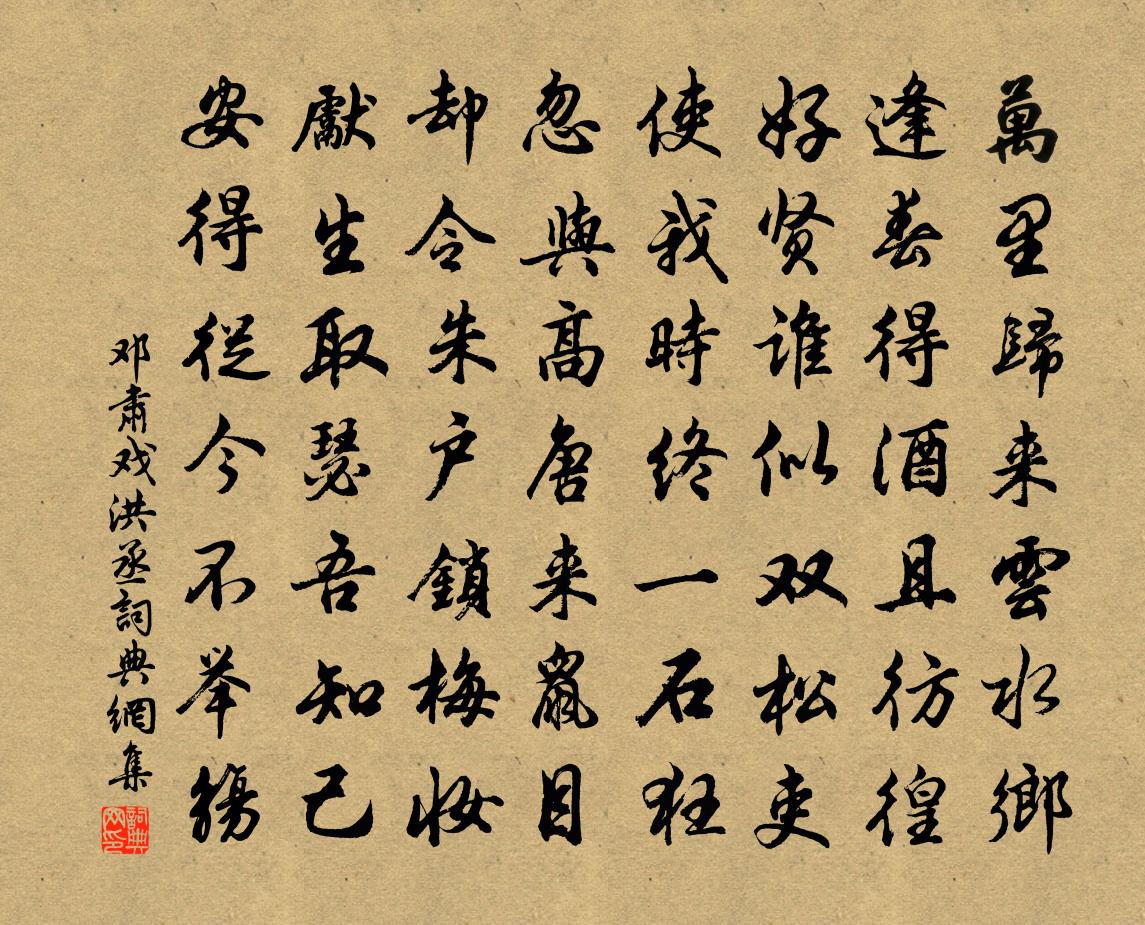 萬里歸来雲水鄉
逢春得酒且彷徨
好贤誰似双松吏
使我時終一石狂
忽與高唐来鼠目
却令朱户鎖梅妆
獻生取瑟吾知己
安得從今不举觴
邓肃戏洪丞詞典網集
詞典网印